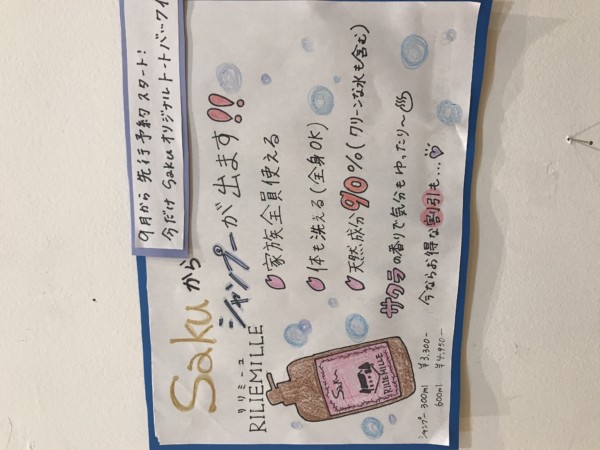 9月から 先行予約スタート!
今だけ Saku オリジナルトートバッグ
Sakuから
シャンプーが出ます!!
リリミーユ
RILIEMILLE
家族全員使える
体も洗える(全身OK)
天然成分90%(クリーンな水も含む)
サクラの香りで気分もゆったり〜♨
今ならお得な割引も…
Saku
RILIEMILLE
シャンプー 300ml ¥3,300-
600ml ¥4,950-